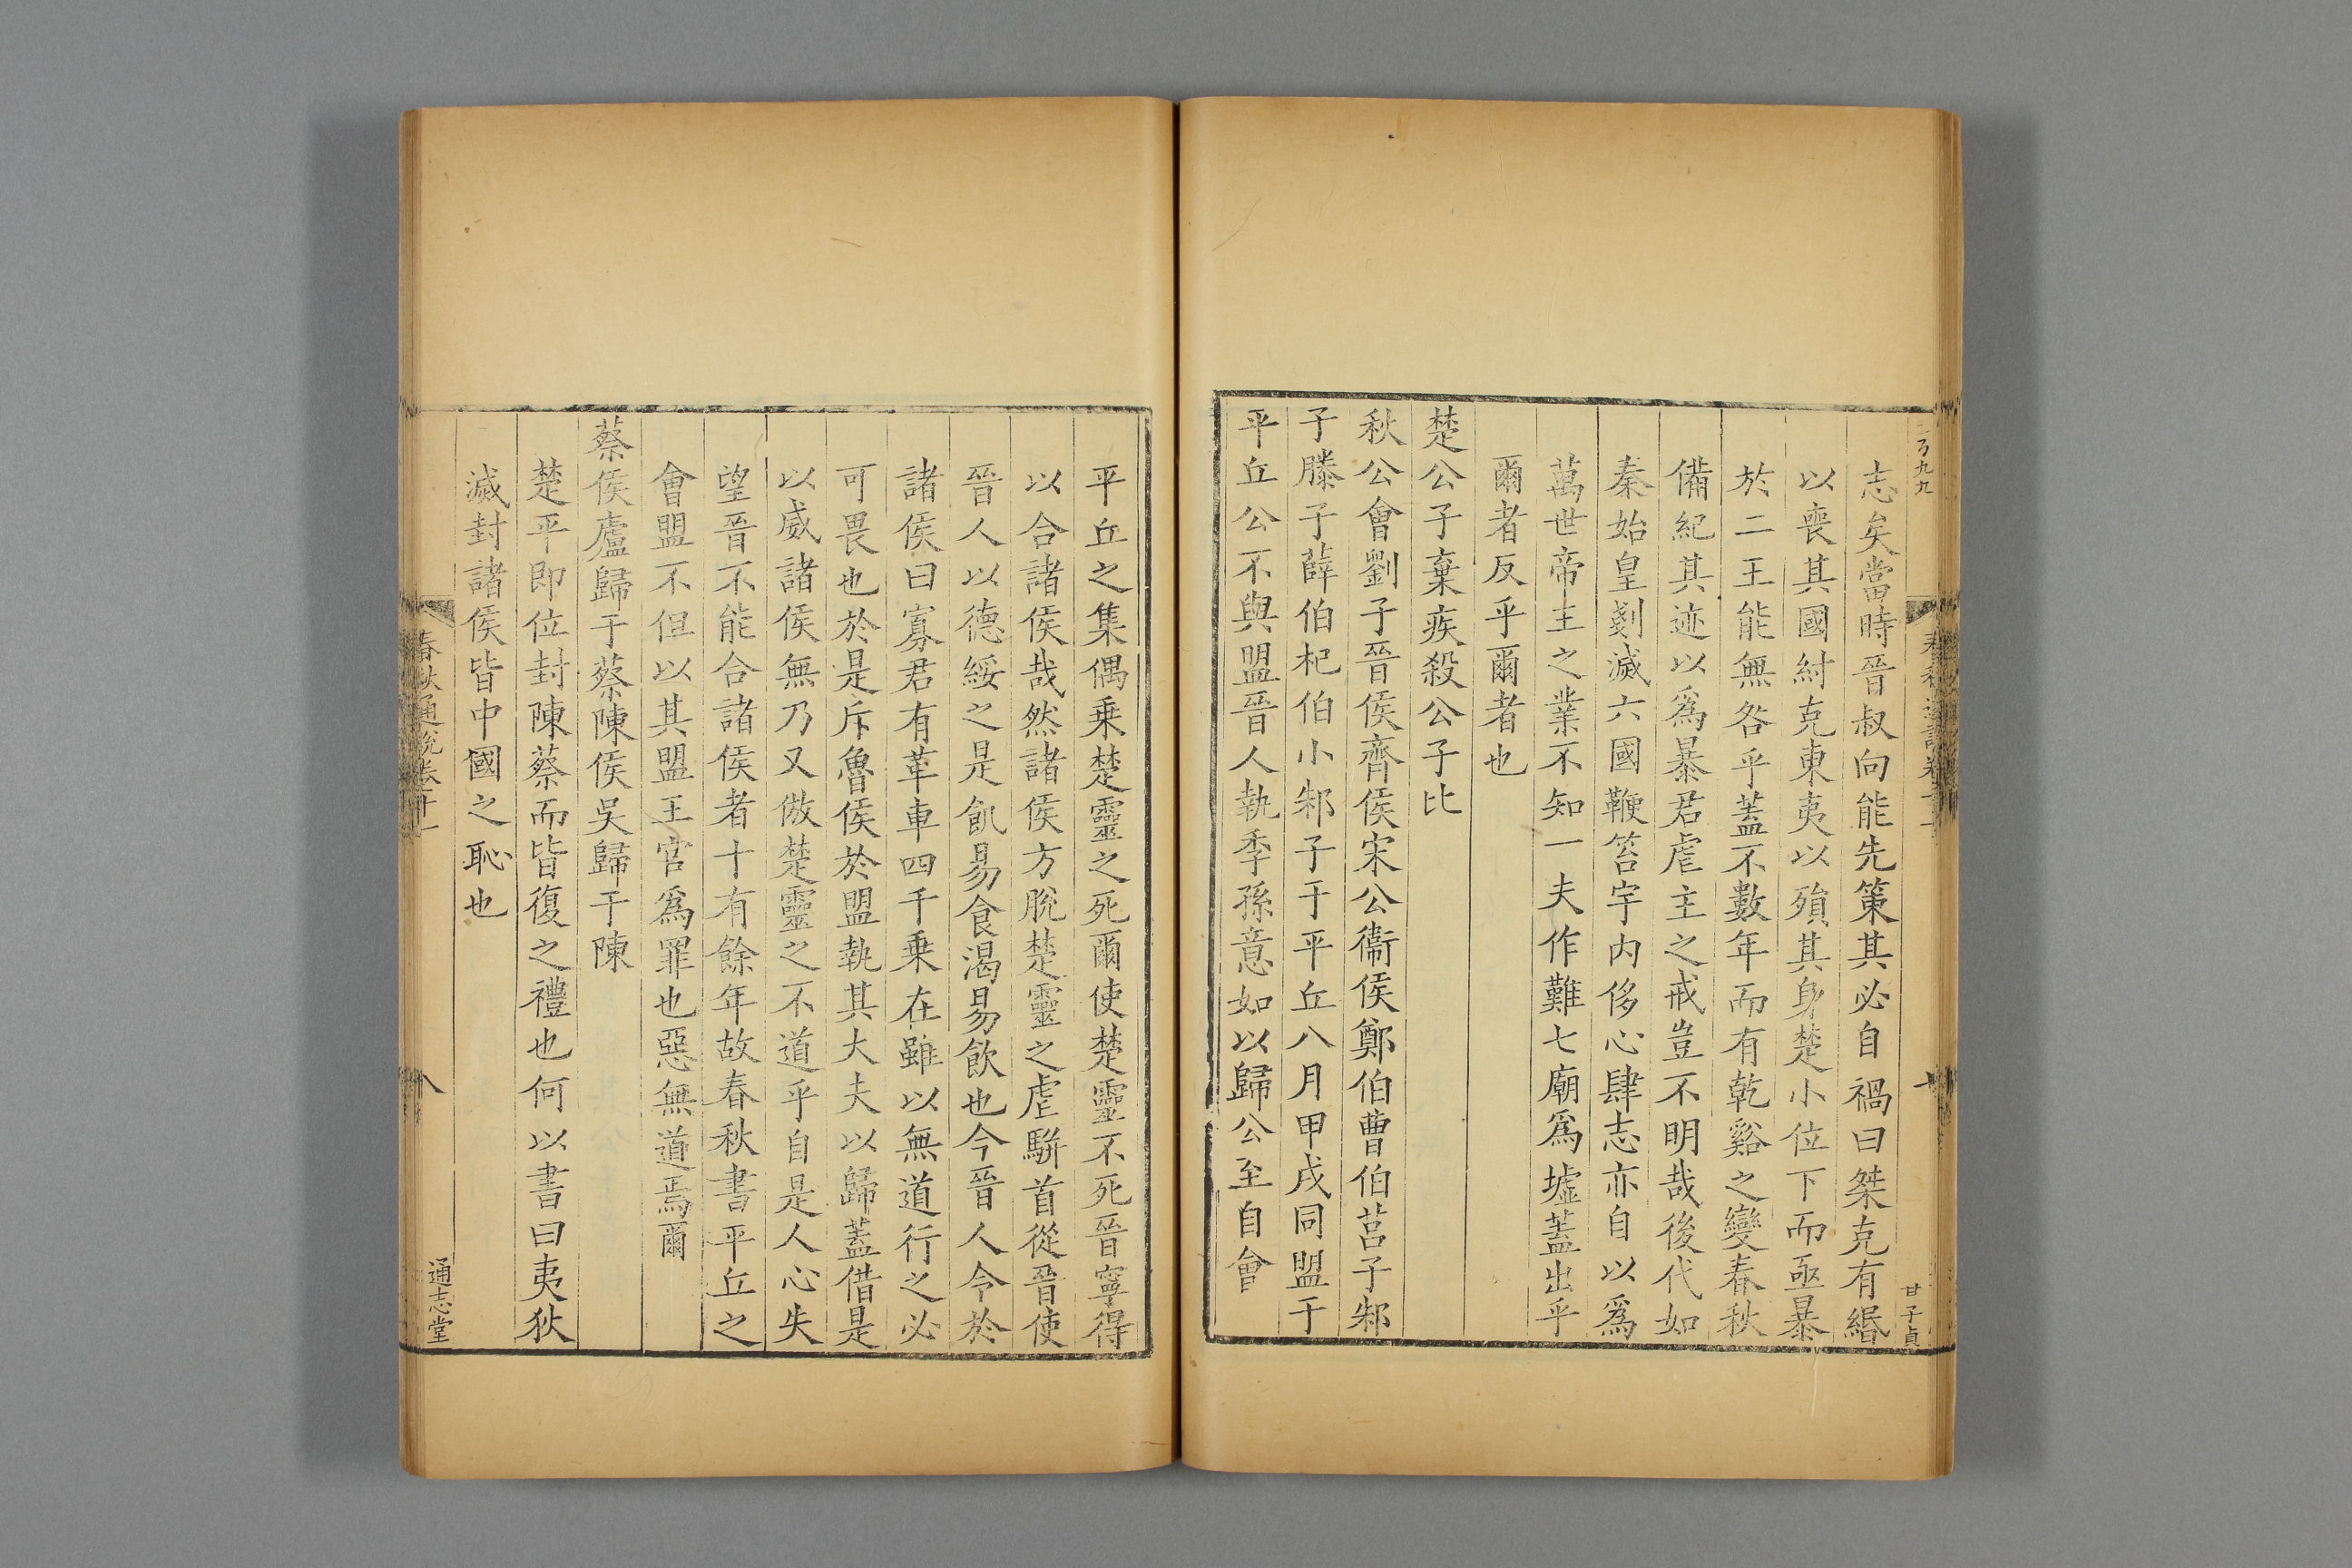 志矣當時晉叔向能先策其必自禍曰桀克有緡
以喪其國紂克東夷以殞其身楚小位下而亟暴
於二王能無咎乎蓋不數年而有乾谿之變春秋
備紀其迹以爲暴君虐主之戒豈不明哉後代如
秦始皇剗滅六國鞭笞宇内侈心肆志亦自以爲
萬世帝王之業不知一夫作難七廟爲墟蓋出乎
爾者反乎爾者也
楚公子棄疾殺公子比
秋公會劉子晉侯齊侯宋公衞侯鄭伯曹伯莒子邾
子滕子薛伯杞伯小邾子于平丘八月甲戌同盟于
平丘公不與盟晉人執季孫意如以歸公至自會
甘子貞
平丘之集偶乗楚靈之死爾使楚靈不死晉寧得
以合諸侯哉然諸侯方脫楚靈之虐駢首從晉使
晉人以德綏之是飢易食渴易飲也今晉人令於
諸侯曰寡君有革車四千乗在雖以無道行之必
可畏也於是斥魯侯於盟執其大夫以歸蓋借是
以威諸侯無乃又倣楚靈之不道乎自是人心失
望晉不能合諸侯者十有餘年故春秋書平丘之
會盟不但以其盟王官爲罪也惡無道焉爾
蔡侯廬歸于蔡陳侯吳歸于陳
楚平即位封陳蔡而皆復之禮也何以書曰夷狄
滅封諸侯皆中國之恥也
春秋通說卷十一
八
通志堂